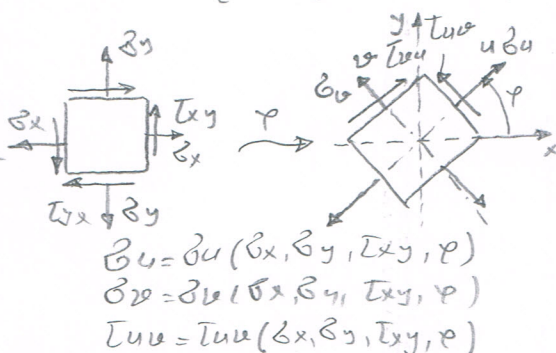 σy
τxy
σx
σx
τyx
σy
φ
y
τuv
v
τvu
u
σu
σv
φ
x
σu = σu (σx, σy, τxy, φ)
σv = σv (σx, σy, τxy, φ)
τuv = τuv (σx, σy, τxy, φ)